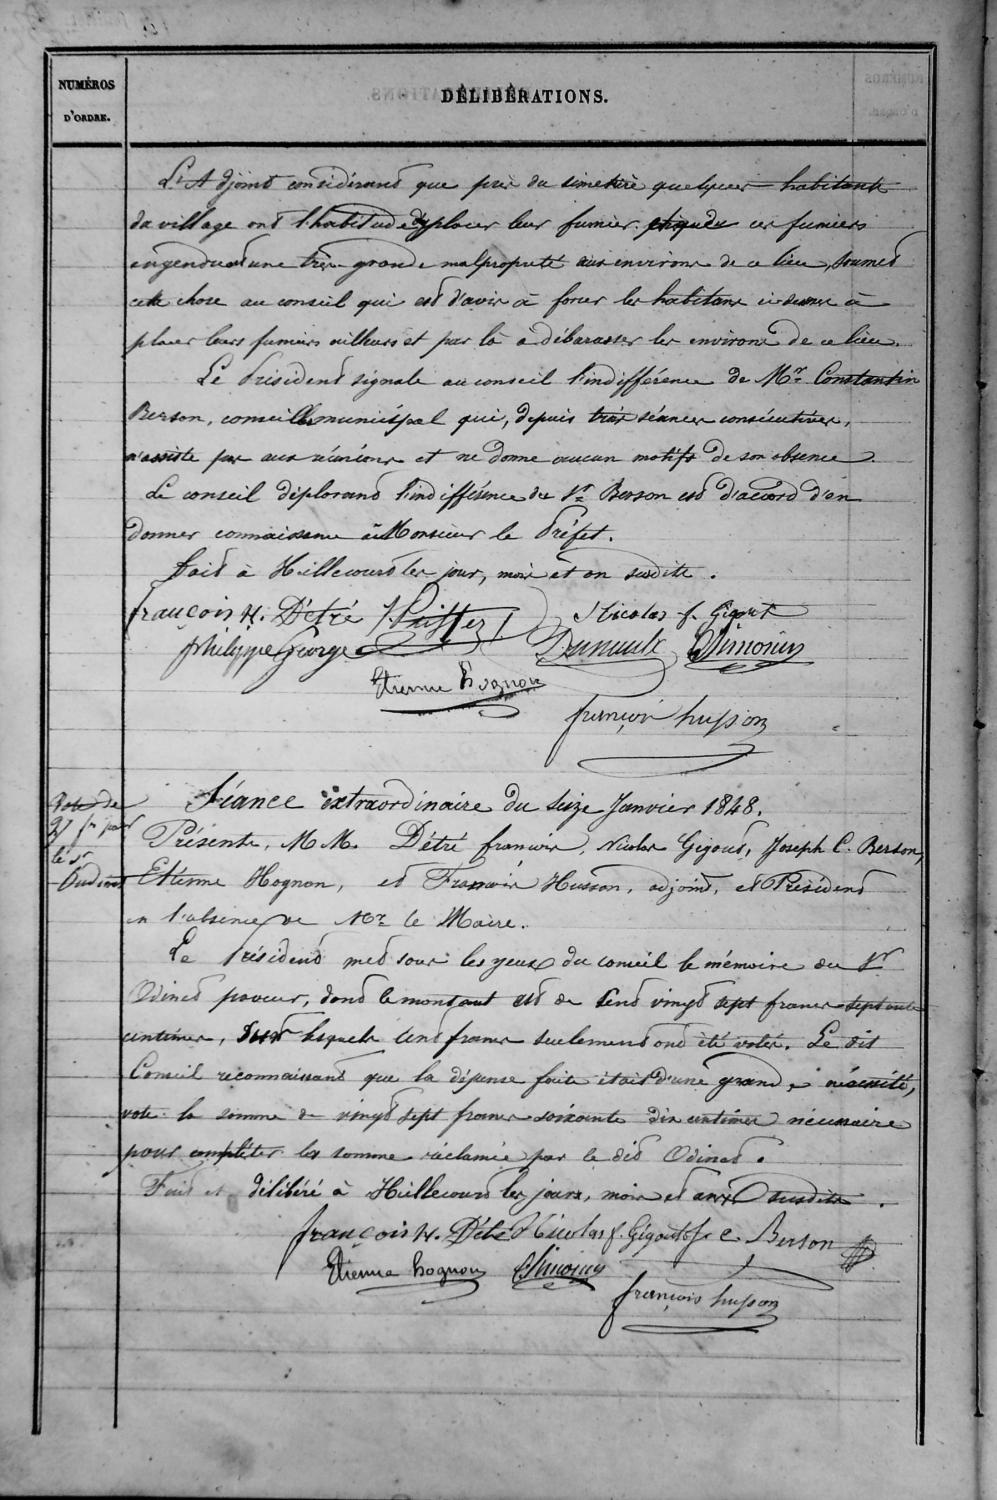 NUMÉROS
D'ORDRE.
DÉLIBÉRATIONS.
L'Adjoint considérant que près du simetiere quelques habitants
du village ont l'habitude de placer leur fumier ces fumiers
engendrent une très grande malpropreté aux environs de ce lieu, soumet
cette chose au conseil qui est d'avis à forcer les habitans à
placer leurs fumiers ailleurs et par là à débarasser les environs de ce lieu.
Le Président signale au conseil l'indifférence de Mr Constantin
Berson, conseiller municipal qui, depuis trois séances consécutives,
n'assiste pas aux réunions et ne donne aucun motifs de son absence.
Le conseil déplorant l'indifférence du Sr Berson est d'accord d'en
donner connaissance à Monsieur le Préfet.
Fait à Hillecourt les jour, mois et an susdits.
françois N. Détré Nicolas f. Gigout
philippe George Simonin
Etienne hognon
françois husson
Vote de
27 fr pour
le Sr
Odinot
Séance extraordinaire du seize Janvier 1848.
Présents, M M. Détré francois, Nicolas Gigout, Joseph C. Berson,
Etienne Hognon, et François Husson, adjoint, et Président
en l'absence de Mr le Maire.
Le Président met sous les yeux du conseil le mémoire du Sr
Odinot paveur, dont le montant est de Cent vingt sept francs septante
centimes, sur lesquels Cent francs seulement ont été votés. Le dit
Conseil reconnaissant que la dépense faite était d'une grande nécessité,
vote la somme de vingt sept francs soixante dix centimes nécessaire
pour complèter la somme réclamée par le dit Odinot.
Fait et délibéré à Hillecourt les jours, mois et ans susdits.
françois N. Détré Nicolas f. Gigout J. C. Berson
Etienne hognon Simonin
françois husson